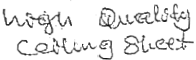 High Quality
Ceiling Sheet